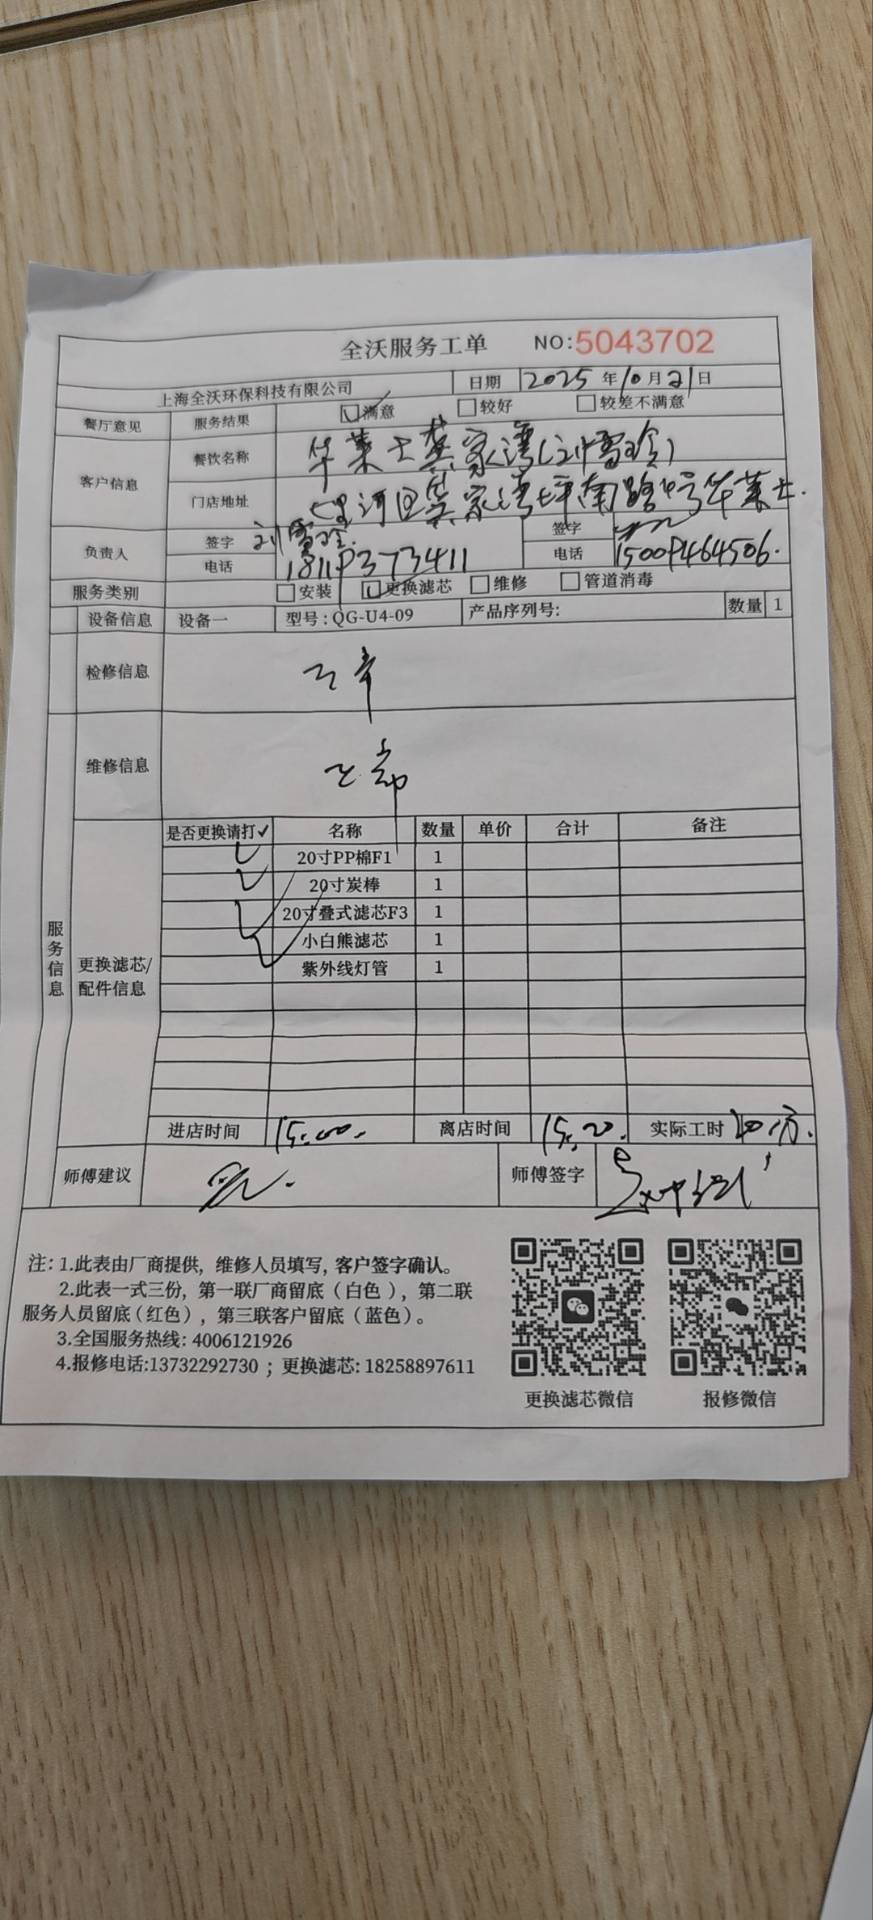 全沃服务工单 NO:5043702
上海全沃环保科技有限公司 日期 2025 年 10 月 21 日
餐厅意见 服务结果 满意 较好 较差不满意
客户信息 餐饮名称 华莱士龚家湾(刘雪玲)
门店地址 七里河区龚家湾坪南路 号华莱士.
负责人 签字 刘雪玲 签字
电话 18119373411 电话 15009464506.
服务类别 安装 更换滤芯 维修 管道消毒
设备信息 设备一 型号:QG-U4-09 产品序列号: 数量 1
检修信息
维修信息
服务信息
更换滤芯/配件信息
是否更换请打✓ 名称 数量 单价 合计 备注
✓ 20寸PP棉F1 1
✓ 20寸炭棒 1
✓ 20寸叠式滤芯F3 1
小白熊滤芯 1
✓ 紫外线灯管 1
进店时间 15:00. 离店时间 15:20. 实际工时 20分.
师傅建议 师傅签字
注: 1.此表由厂商提供, 维修人员填写, 客户签字确认。
2.此表一式三份, 第一联厂商留底(白色), 第二联
服务人员留底(红色), 第三联客户留底(蓝色)。
3.全国服务热线: 4006121926
4.报修电话:13732292730 ; 更换滤芯: 18258897611
更换滤芯微信 报修微信